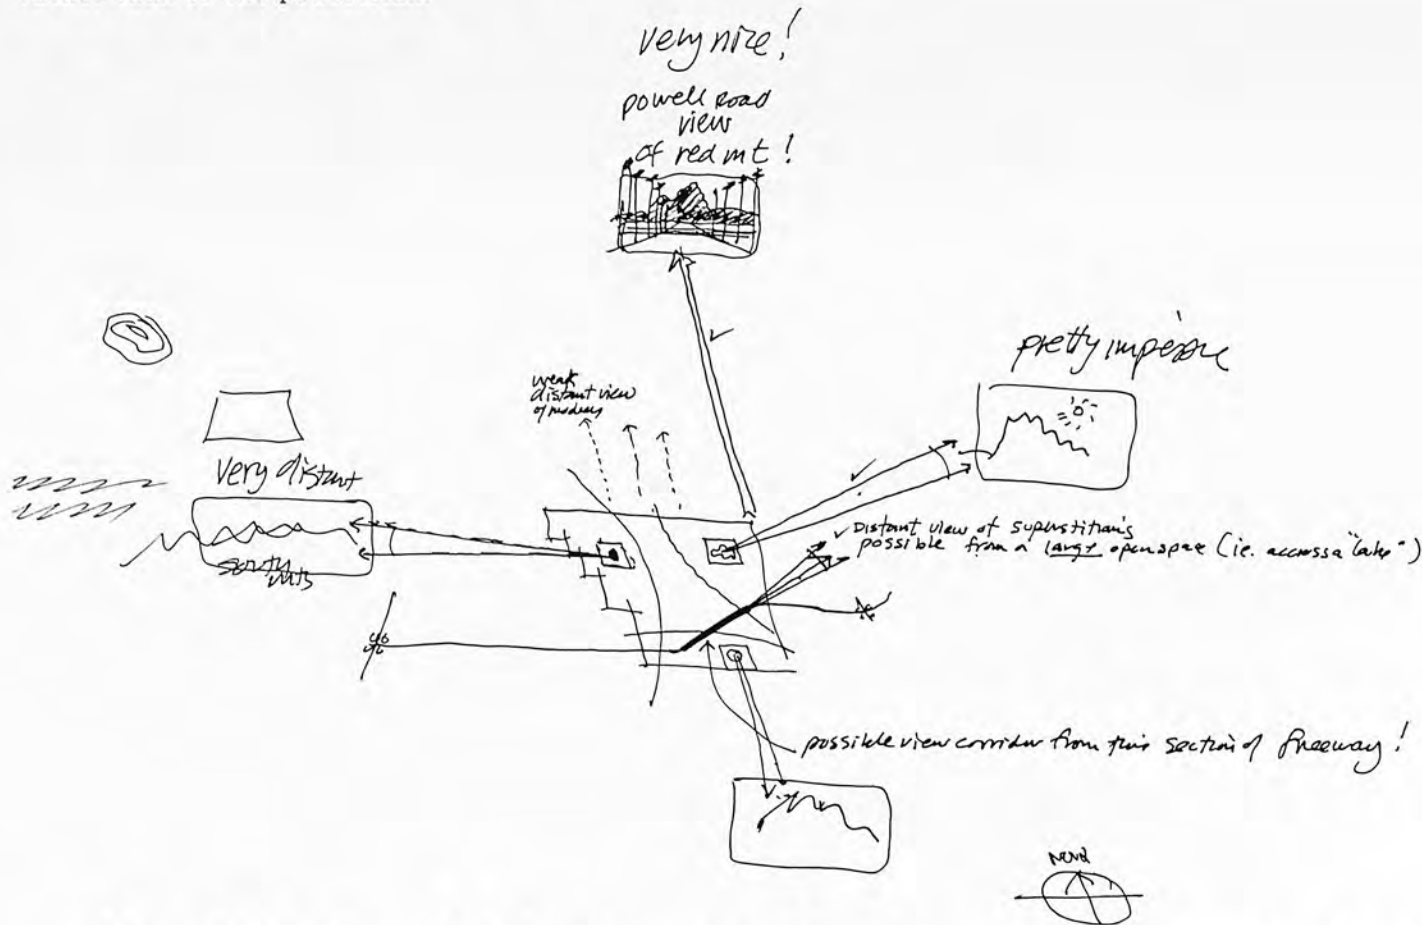 very nice!
powell road
view
of red mt!
pretty impessve
weak
distant view
of
very distant
south
mts
Distant view of superstitions
possible from a large open space (ie. accross a "lake")
possible view corridor from this section of freeway!